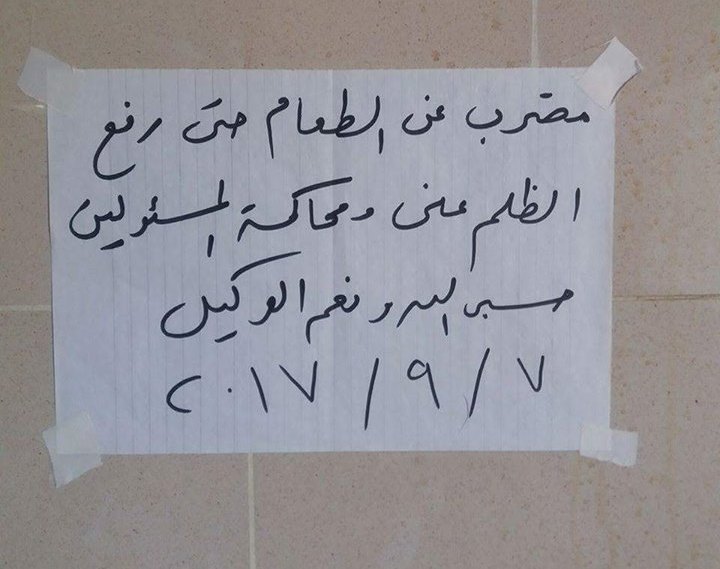 مضرب عن الطعام حتى رفع
الظلم عنى ومحاكمة المسئولين
حسبى الله ونعم الوكيل
٧/٩/٢٠١٧